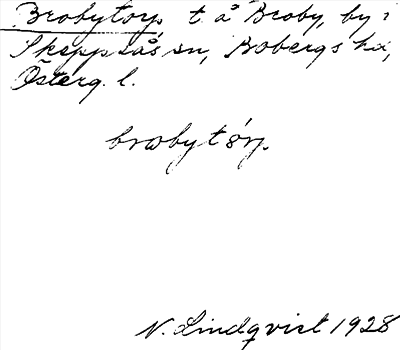 Brobytorp, t. å Broby, by i
Skeppsås sn, Bobergs hd,
Österg. l.
brobytórp.
N. Lindqvist 1928